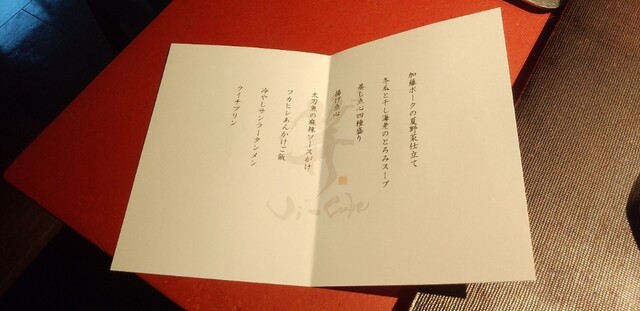 加藤ポークの夏野菜仕立て
冬瓜と干し海老のとろみスープ
蒸し点心四種盛り
揚げ点心
太刀魚の麻辣ソースがけ
フカヒレあんかけご飯
冷やしサンラータンメン
ライチプリン